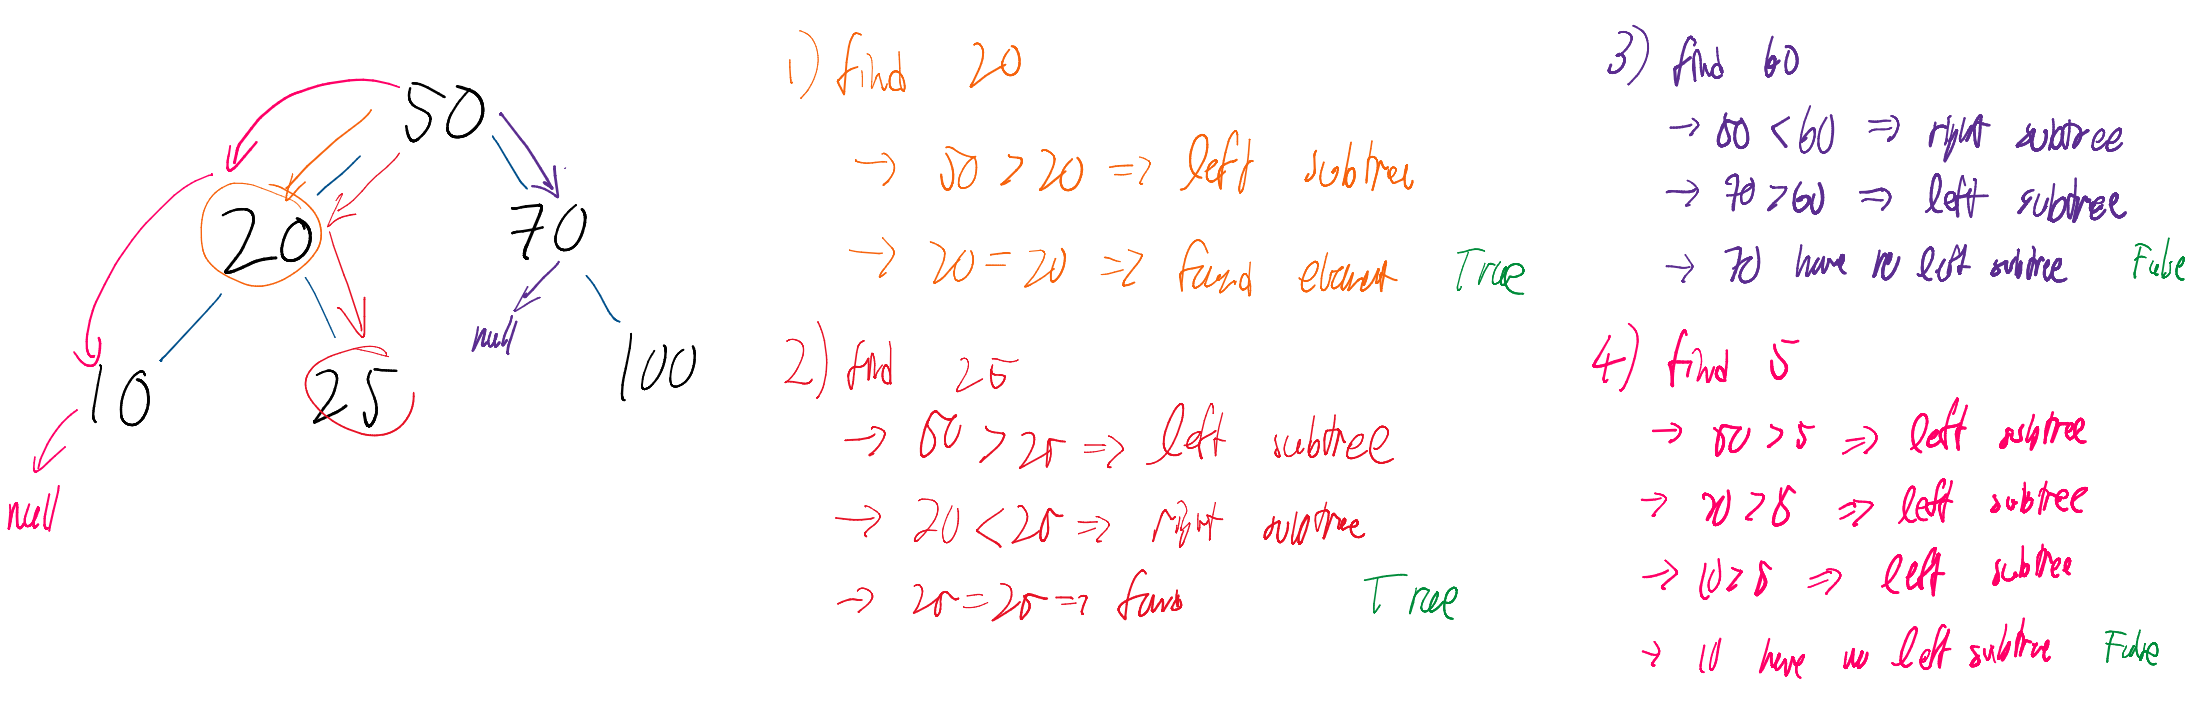 50
20 70
null
10 25 100
null
1) find 20
→ 50 > 20 => left subtree
→ 20 = 20 => found element True
2) find 25
→ 50 > 25 => left subtree
→ 20 < 25 => right subtree
→ 25 = 25 => found True
3) find 60
→ 50 < 60 => right subtree
→ 70 > 60 => left subtree
→ 70 have no left subtree False
4) find 5
→ 50 > 5 => left subtree
→ 20 > 5 => left subtree
→ 10 > 5 => left subtree
→ 10 have no left subtree False